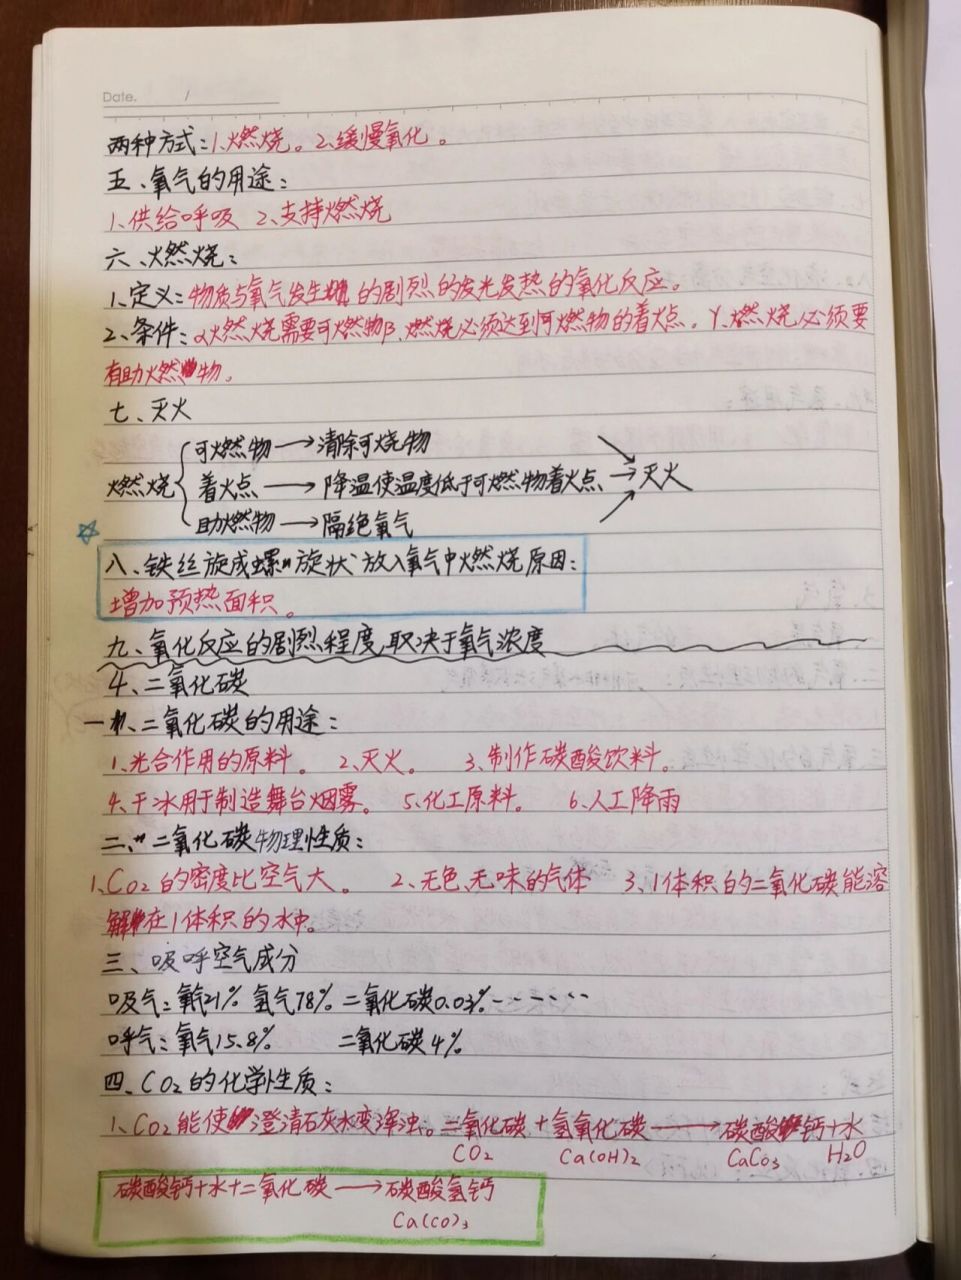 Date. /
两种方式：1、燃烧。2、缓慢氧化。
五、氧气的用途：
1、供给呼吸 2、支持燃烧
六、燃烧：
1、定义：物质与氧气发生 的剧烈的发光发热的氧化反应。
2、条件：α燃烧需要可燃物β、燃烧必须达到可燃物的着火点。γ、燃烧必须要
有助燃物。
七、灭火
可燃物→清除可烧物
燃烧 着火点→降温使温度低于可燃物着火点 →灭火
助燃物→隔绝氧气
八、铁丝旋成螺旋状放入氧气中燃烧原因：
增加预热面积。
九、氧化反应的剧烈程度,取决于氧气浓度
4、二氧化碳
一、二氧化碳的用途：
1、光合作用的原料。 2、灭火。 3、制作碳酸饮料。
4、干冰用于制造舞台烟雾。 5、化工原料。 6、人工降雨
二、二氧化碳物理性质：
1、CO2的密度比空气大。 2、无色、无味的气体 3、1体积的二氧化碳能溶
解在1体积的水中。
三、吸呼空气成分
吸气：氧气21% 氮气78% 二氧化碳0.03%------
呼气：氧气15.8% 二氧化碳4%
四、CO2的化学性质：
1、CO2能使澄清石灰水变浑浊。二氧化碳+氢氧化碳→碳酸钙+水
CO2 Ca(OH)2 CaCO3 H2O
碳酸钙+水+二氧化碳→碳酸氢钙
Ca(CO)3